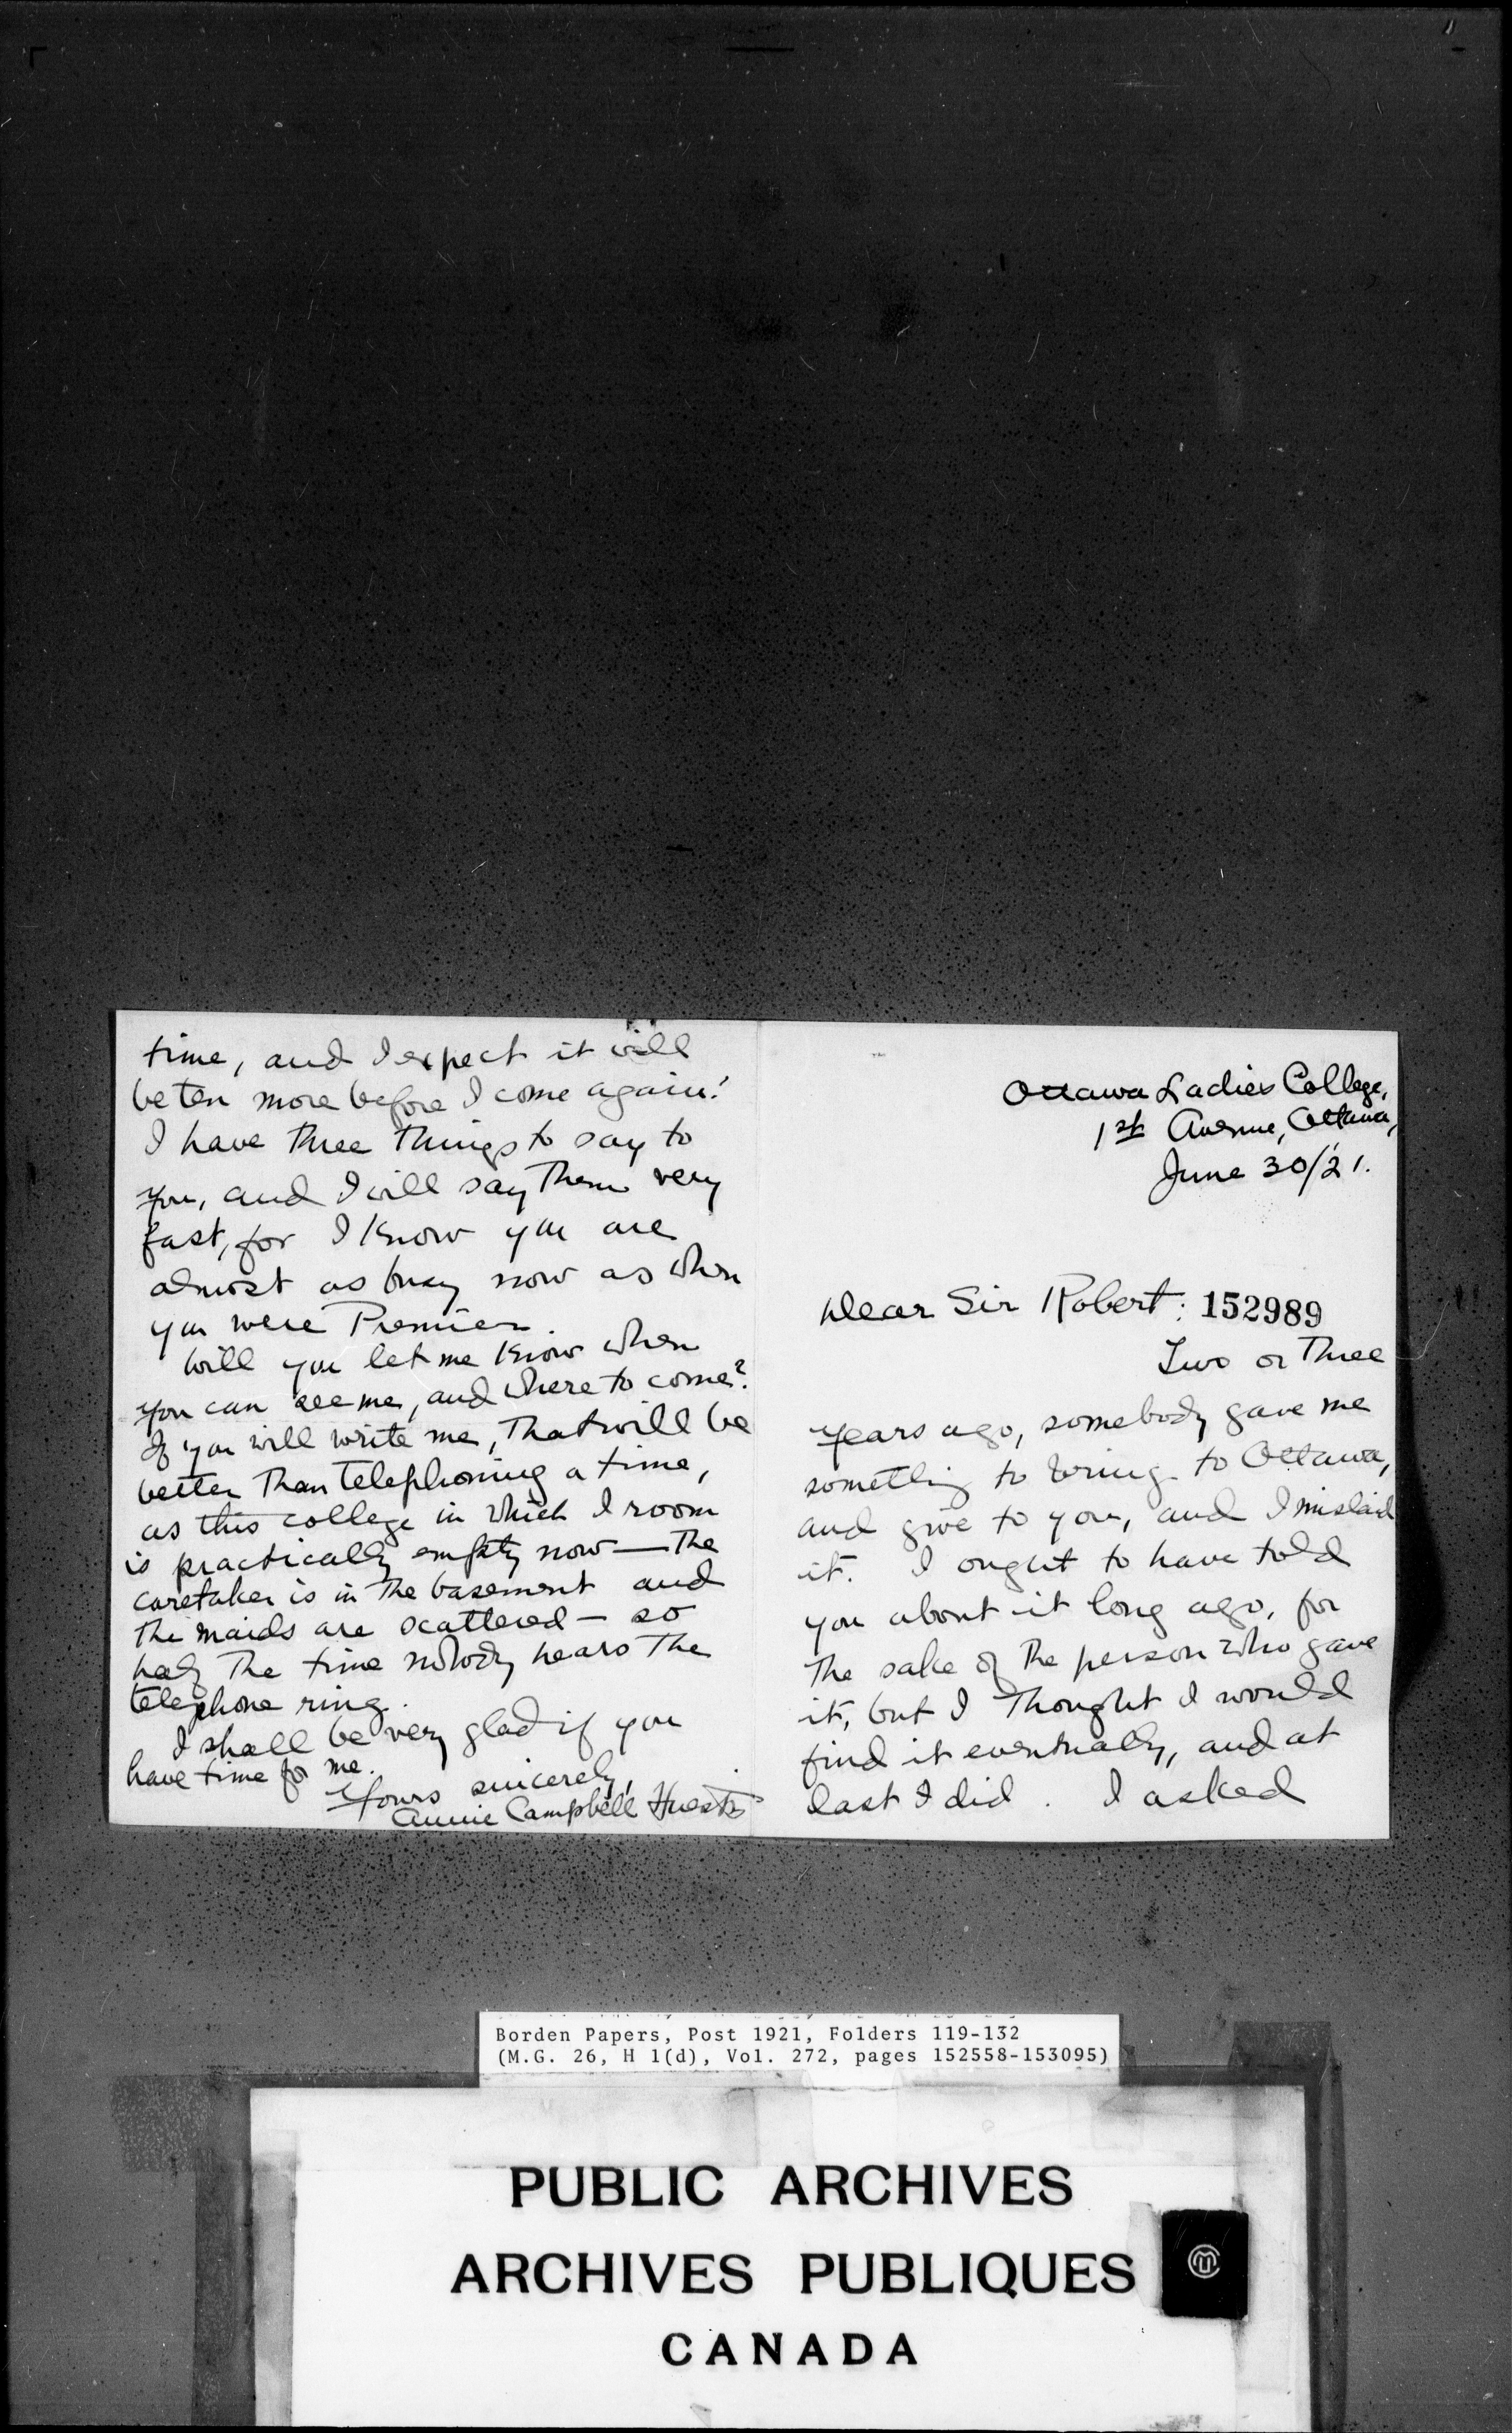 time, and I expect it will
be ten more before I come again!
I have three things to say to
you, and I will say them very
fast, for I know you are
almost as busy now as when
you were Premier.
Will you let me know when
you can see me, and where to come?
If you will write me, that will be
better than telephoning a time,
as this college in which I room
is practically empty now — the
caretaker is in the basement and
the maids are scattered — so
half the time nobody hears the
telephone ring.
I shall be very glad if you
have time for me.
Yours sincerely,
Annie Campbell Huestis
Ottawa Ladies College,
1st Avenue, Ottawa,
June 30/21.
Dear Sir Robert: 152989
Two or three
years ago, somebody gave me
something to bring to Ottawa,
and give to you, and I mislaid
it. I ought to have told
you about it long ago, for
the sake of the person who gave
it, but I thought I would
find it eventually, and at
last I did. I asked
Borden Papers, Post 1921, Folders 119-132
(M.G. 26, H 1(d), Vol. 272, pages 152558-153095)
PUBLIC ARCHIVES
ARCHIVES PUBLIQUES
CANADA